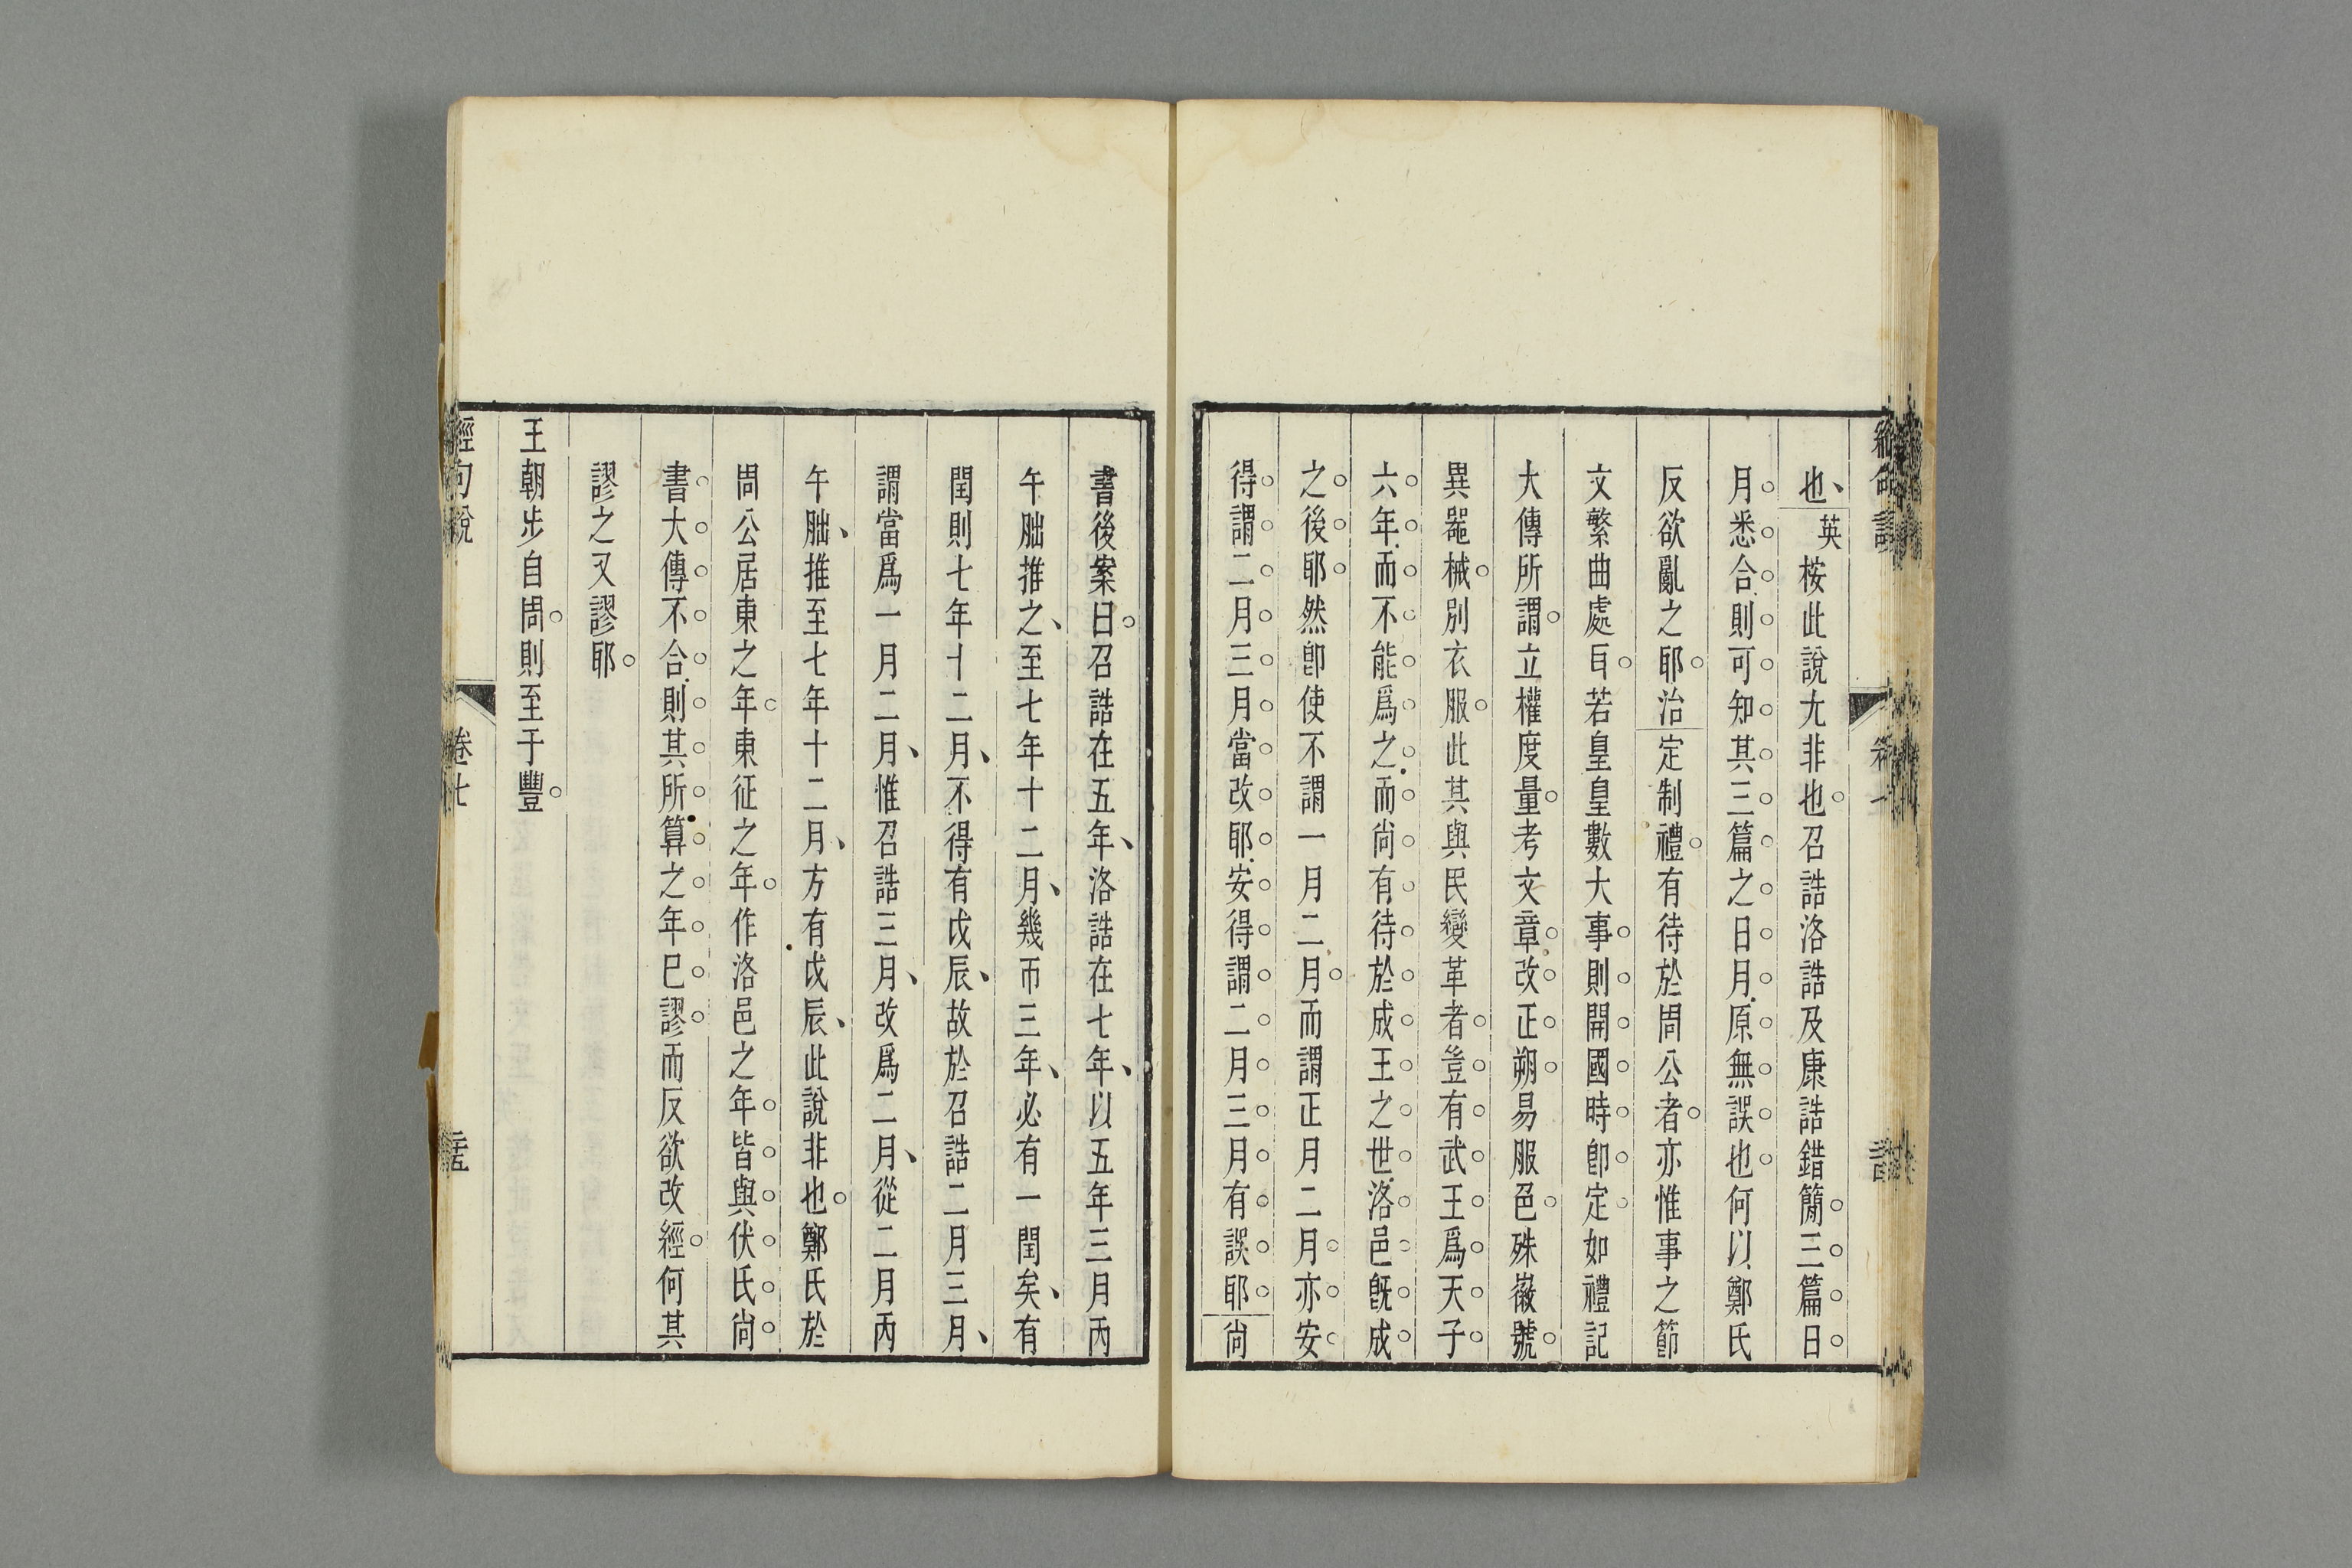 也、英桉此說尢非也。召誥洛誥及康誥錯簡三篇日
月悉合則可知其三篇之日月原無誤也何以鄭氏
反欲亂之耶。治定制禮。有待於周公者。亦惟事之節
文繁曲處耳。若皇皇數大事則開國時卽定如禮記
大傳所謂。立權度量。考文章。改正朔。易服色。殊徽號。
異噐械。別衣服。此其與民變革者。豈有武王爲天子
六年而不能爲之而尚有待於成王之世洛邑旣成
之後耶。然卽使不謂一月二月。而謂正月二月亦安
得謂二月三月當改耶安得謂二月三月有誤耶。尚
書後案曰。召誥在五年、洛誥在七年、以五年三月丙
午朏推之、至七年十二月、幾帀三年、必有一閏矣、有
閏則七年十二月、不得有戊辰、故於召誥二月三月、
謂當爲一月二月、惟召誥三月、改爲二月、從二月丙
午朏、推至七年十二月、方有戊辰、此說非也。鄭氏於
周公居東之年。東征之年。作洛邑之年。皆與伏氏尚
書大傳不合則其所算之年巳謬。而反欲改經。何其
謬之又謬耶。
王朝步自周。則至于豐。
經句說
卷七